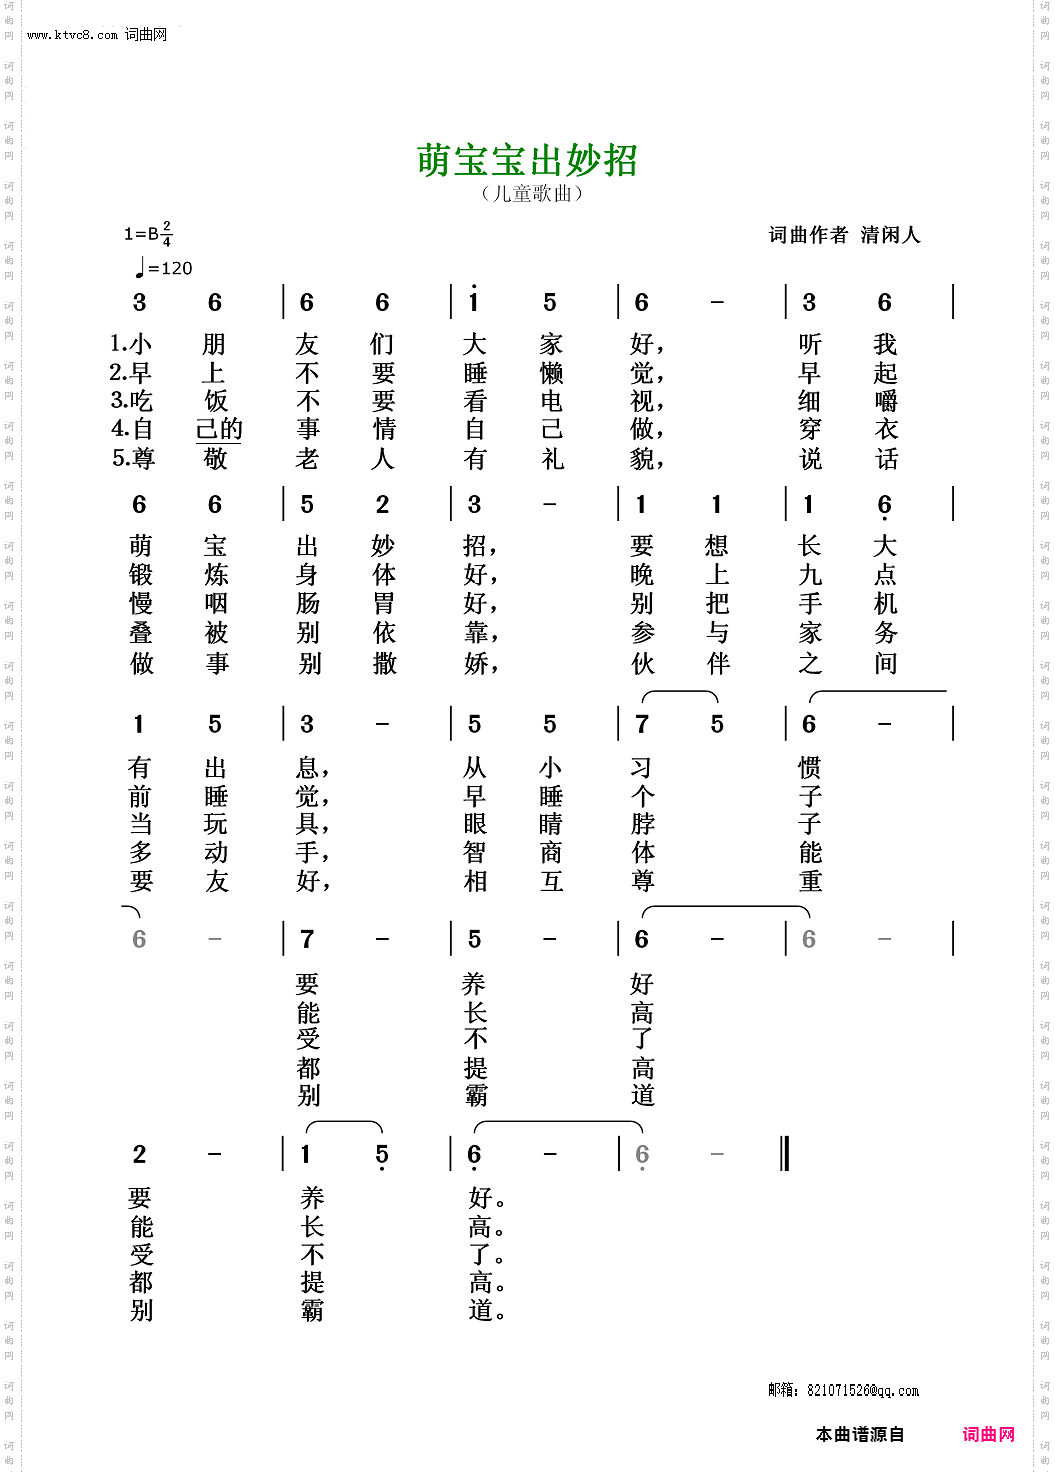 www.ktvc8.com 词曲网
萌宝宝出妙招
（儿童歌曲）
1=B 2/4
词曲作者 清闲人
♩=120
3 6 | 6 6 | 1̇ 5 | 6 - | 3 6 |
1.小 朋 友 们 大 家 好， 听 我
2.早 上 不 要 睡 懒 觉， 早 起
3.吃 饭 不 要 看 电 视， 细 嚼
4.自 己的 事 情 自 己 做， 穿 衣
5.尊 敬 老 人 有 礼 貌， 说 话
6 6 | 5 2 | 3 - | 1 1 | 1 6̣ |
萌 宝 出 妙 招， 要 想 长 大
锻 炼 身 体 好， 晚 上 九 点
慢 咽 肠 胃 好， 别 把 手 机
叠 被 别 依 靠， 参 与 家 务
做 事 别 撒 娇， 伙 伴 之 间
1 5 | 3 - | 5 5 | 7 5 | 6 - |
有 出 息， 从 小 习 惯
前 睡 觉， 早 睡 个 子
当 玩 具， 眼 睛 脖 子
多 动 手， 智 商 体 能
要 友 好， 相 互 尊 重
6 - | 7 - | 5 - | 6 - | 6 - |
要 养 好
能 长 高
受 不 了
都 提 高
别 霸 道
2 - | 1 5̣ | 6̣ - | 6̣ - ‖
要 养 好。
能 长 高。
受 不 了。
都 提 高。
别 霸 道。
邮箱：821071526@qq.com
本曲谱源自 词曲网